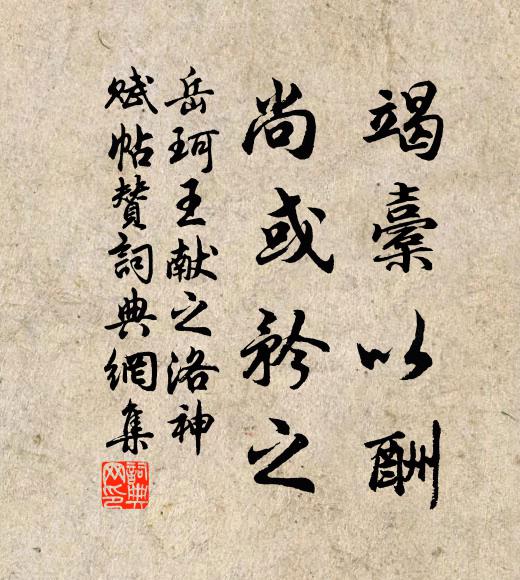 竭橐以酬
尚或矜之
岳珂王献之洛神
赋帖赞詞典網集
詞典网印